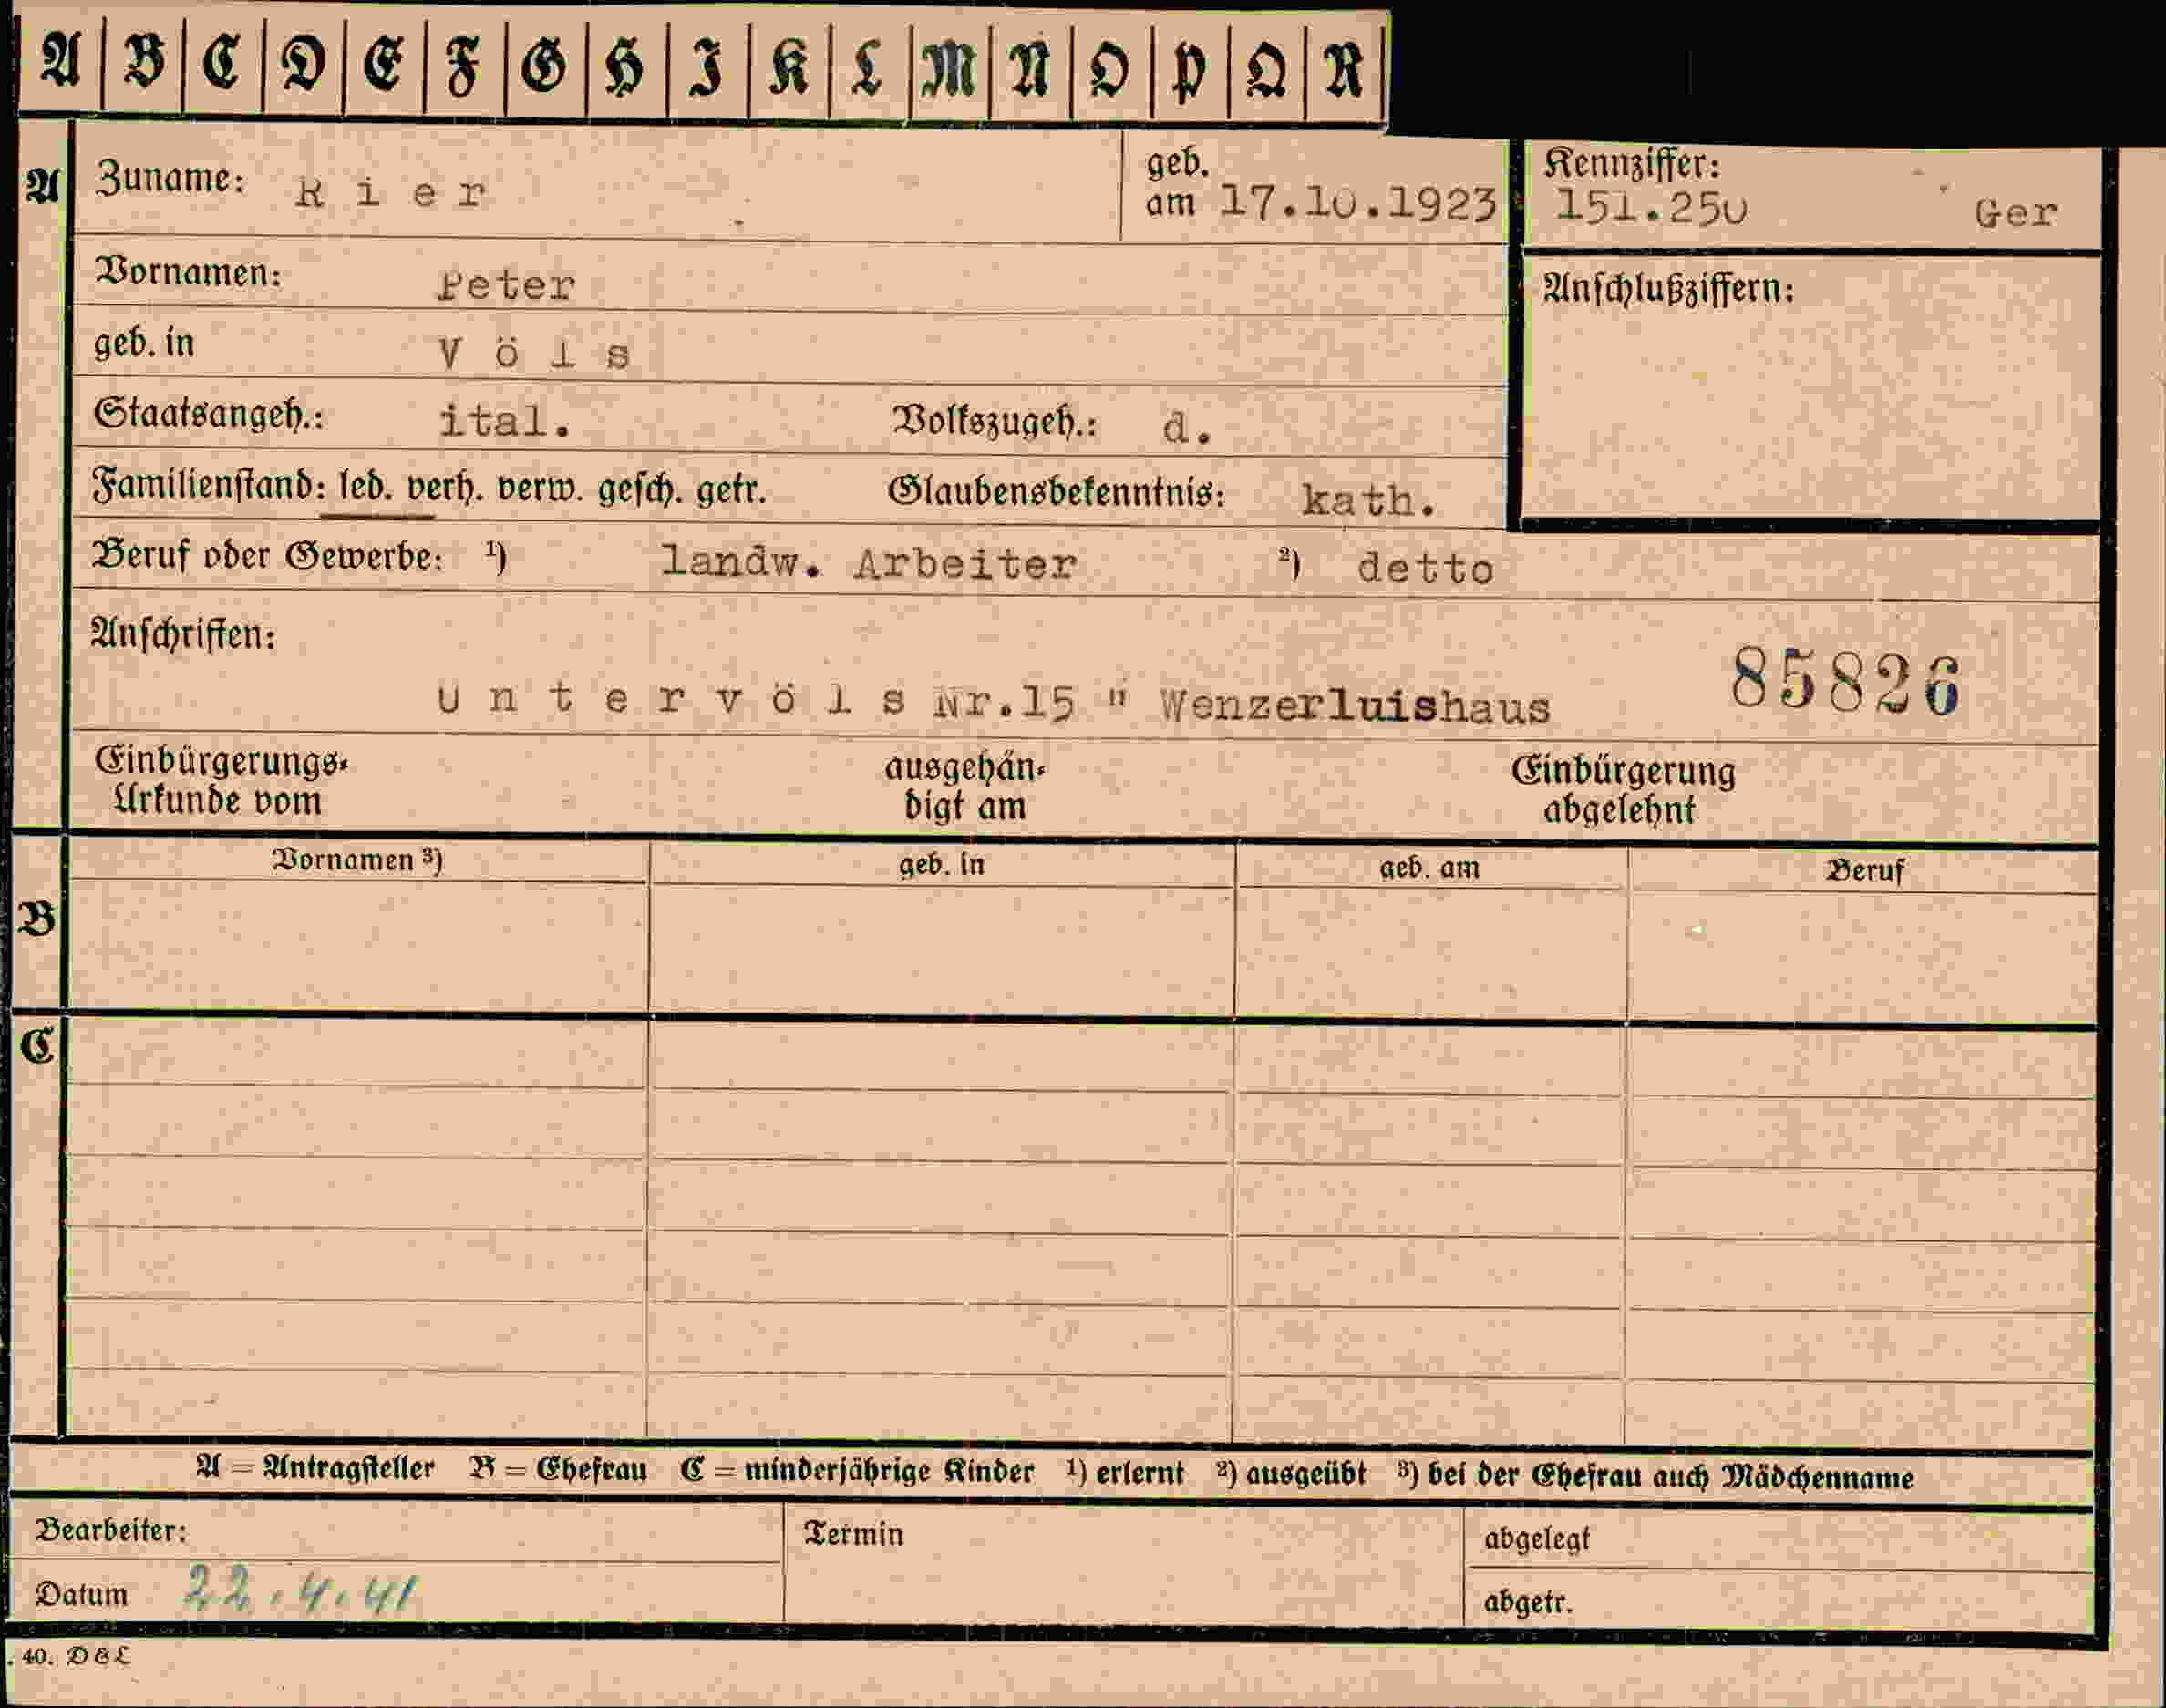 A B C D E F G H I K L M N O P Q R
A Zuname: Rier geb. am 17.10.1923 Kennziffer: 151.250 Ger
Vornamen: Peter Anschlußziffern:
geb. in Völs
Staatsangeh.: ital. Volkszugeh.: d.
Familienstand: led. verh. verw. gesch. getr. Glaubensbekenntnis: kath.
Beruf oder Gewerbe: ¹) landw. Arbeiter ²) detto
Anschriften:
Untervöls Nr.15 " Wenzerluishaus 85826
Einbürgerungs-Urkunde vom ausgehän-digt am Einbürgerung abgelehnt
Vornamen ³) geb. in geb. am Beruf
B
C
A = Antragsteller B = Ehefrau C = minderjährige Kinder ¹) erlernt ²) ausgeübt ³) bei der Ehefrau auch Mädchenname
Bearbeiter: Termin abgelegt
Datum 22.4.41 abgetr.
. 40. D & L